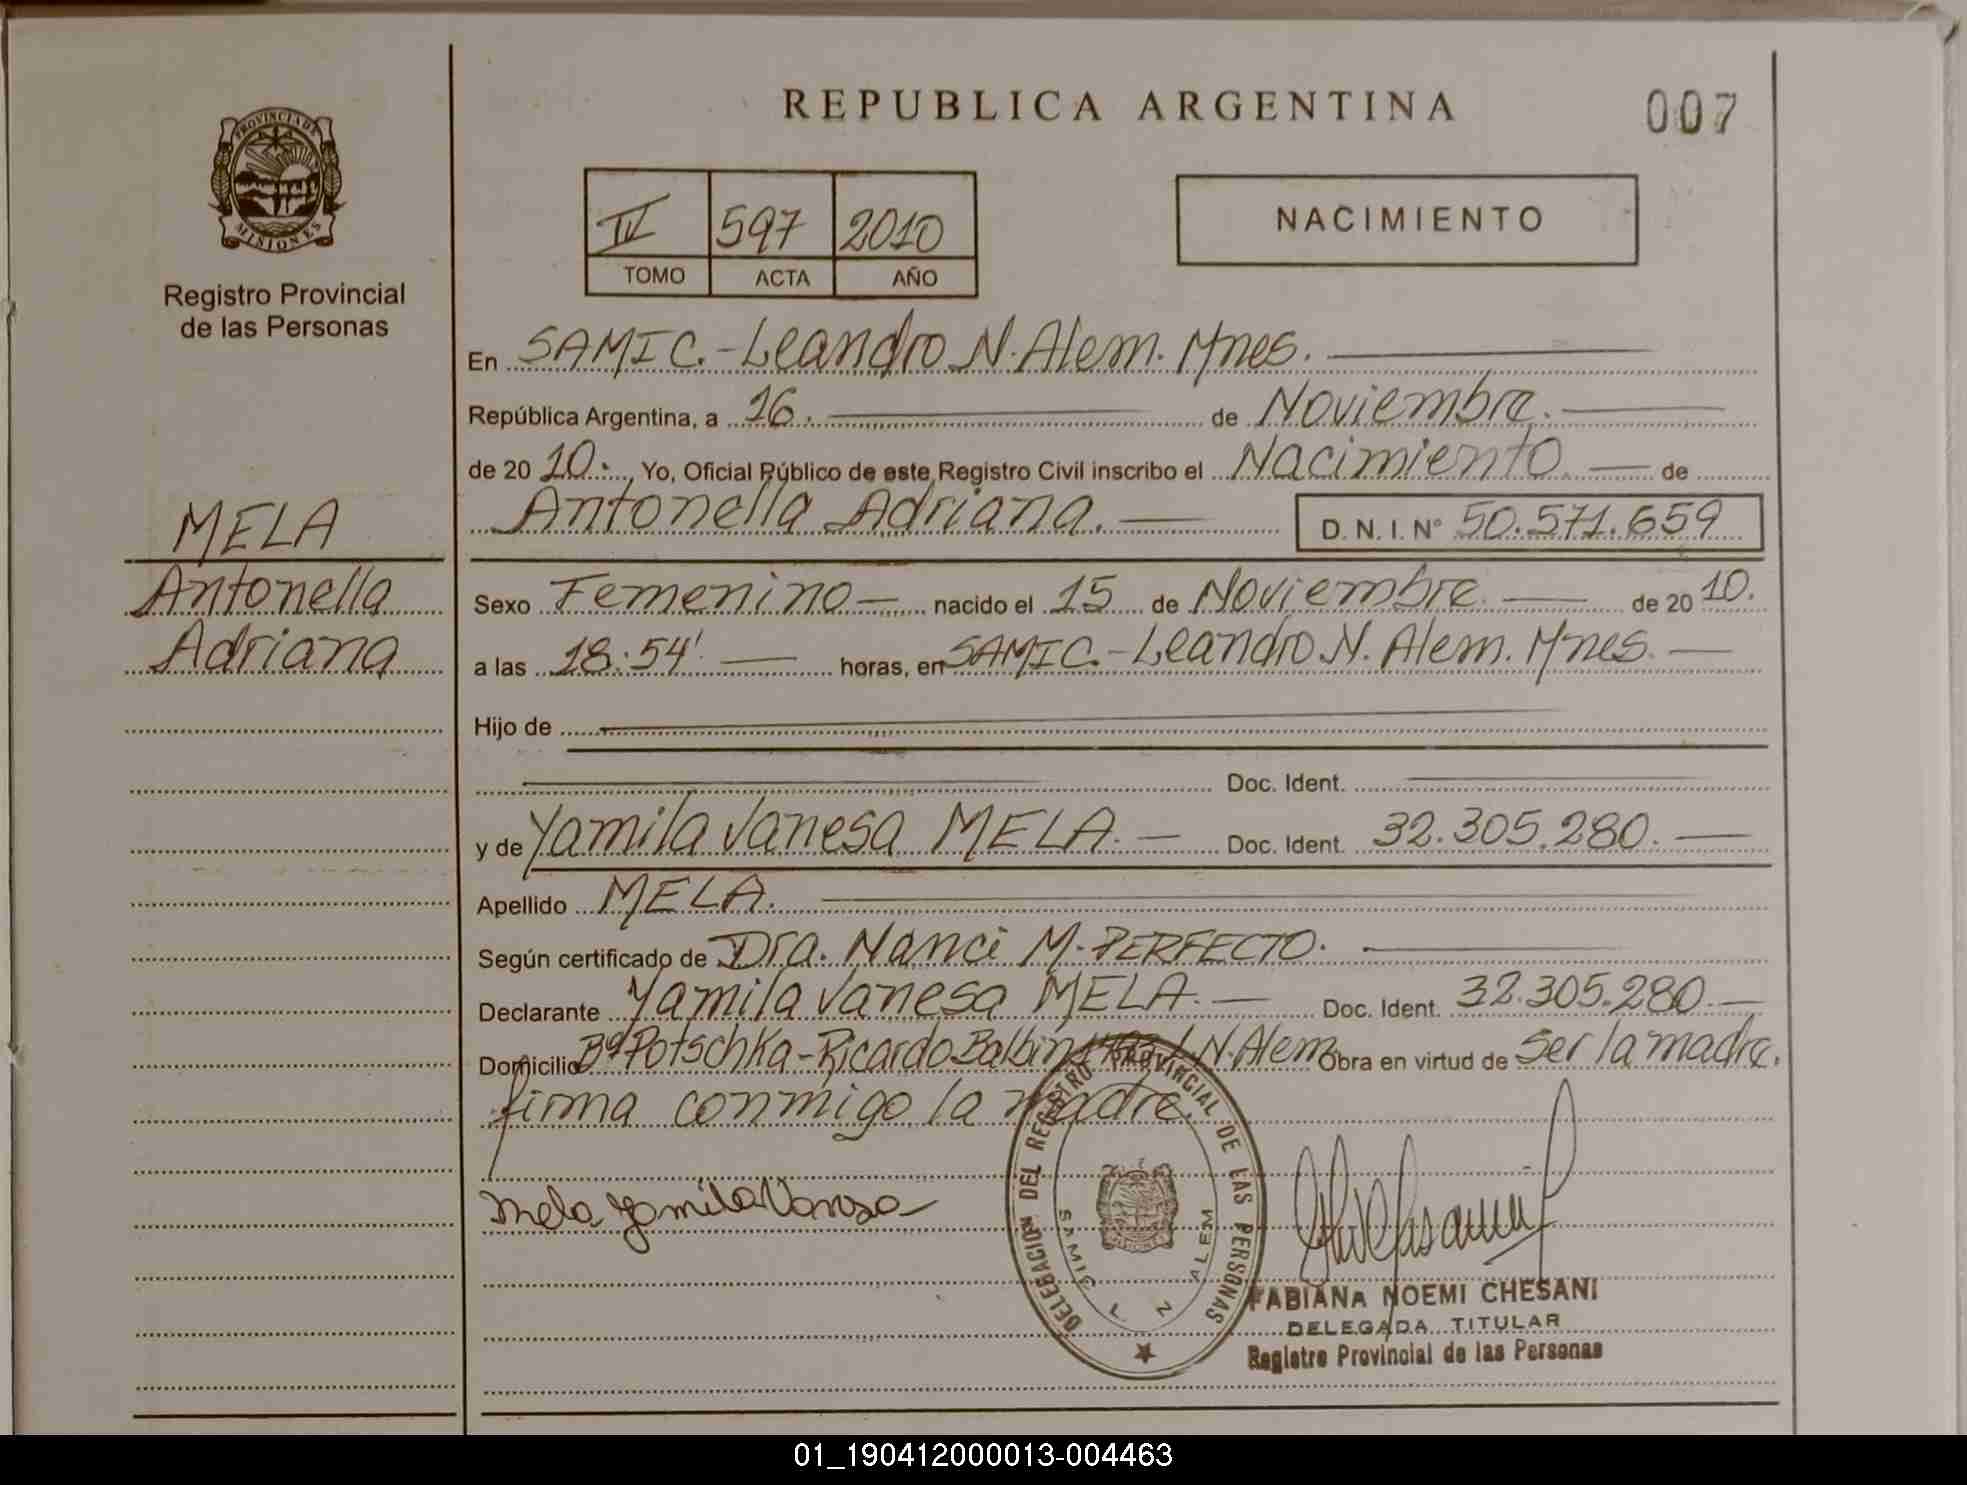 REPUBLICA ARGENTINA
007
PROVINCIA DE
MISIONES
Registro Provincial
de las Personas
IV 597 2010
TOMO ACTA AÑO
NACIMIENTO
En SAMIC.-Leandro N. Alem. Mnes.
República Argentina, a 16. de Noviembre.
de 2010. Yo, Oficial Público de este Registro Civil inscribo el Nacimiento. de
Antonella Adriana. D.N.I. N° 50.571.659
MELA
Antonella
Adriana
Sexo Femenino nacido el 15 de Noviembre de 2010.
a las 18:54' horas, en SAMIC.-Leandro N. Alem. Mnes.
Hijo de
Doc. Ident.
y de Yamila Vanesa MELA. Doc. Ident. 32.305.280.
Apellido MELA.
Según certificado de Dra. Nanci M. PERFECTO.
Declarante Yamila Vanesa MELA. Doc. Ident. 32.305.280.
Domicilio B° Potschka-Ricardo Balbin L.N. Alem Obra en virtud de Ser la madre.
firma conmigo la madre.
Mela Yamila Vanesa
DELEGACION DEL REGISTRO PROVINCIAL DE LAS PERSONAS
SAMIC L N ALEM
FABIANA NOEMI CHESANI
DELEGADA TITULAR
Registro Provincial de las Personas
01_190412000013-004463